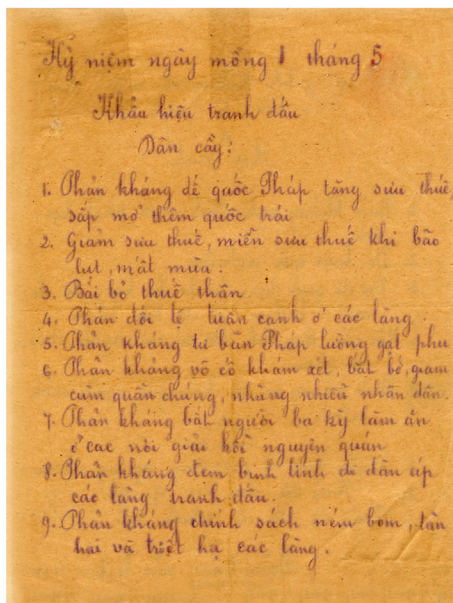 Kỷ niệm ngày mồng 1 tháng 5
Khẩu hiệu tranh đấu
Dân cầy:
1. Phản kháng đế quốc Pháp tăng sưu thuế,
sắp mở thêm quốc trái
2. Giảm sưu thuế, miễn sưu thuế khi bão
lụt, mất mùa.
3. Bãi bỏ thuế thân
4. Phản đối lệ tuần canh ở các làng.
5. Phản kháng tư bản Pháp lường gạt phu
6. Phản kháng vô cố khám xét, bắt bớ, giam
cùm quần chúng, nhũng nhiễu nhân dân.
7. Phản kháng bắt người ba kỳ làm ăn
ở các nơi giải hồi nguyên quán
8. Phản kháng đem binh lính đi đàn áp
các làng tranh đấu.
9. Phản kháng chính sách ném bom, tàn
hại và triệt hạ các làng.